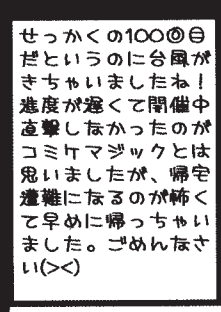 せっかくの100回目
だというのに台風が
きちゃいましたね！
進度が遅くて開催中
直撃しなかったのが
コミケマジックとは
思いましたが、帰宅
遭難になるのが怖く
て早めに帰っちゃい
ました。ごめんなさ
い(><)